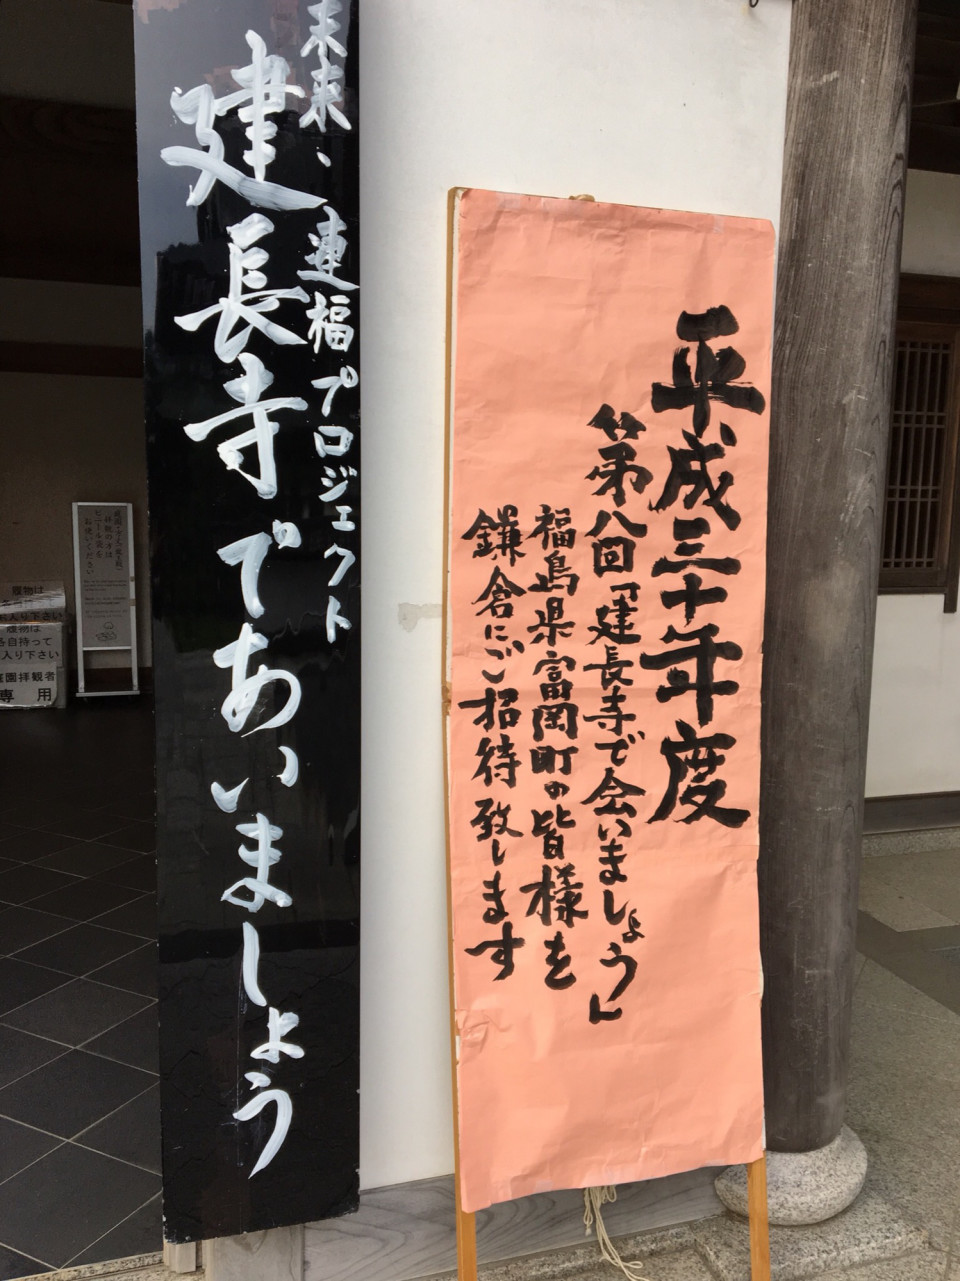 平成三十年度
第八回「建長寺で会いましょう」
福島県富岡町の皆様を
鎌倉にご招待致します
未来、連福プロジェクト
建長寺であいましょう
履物は
お入り下さい
履物は
各自持って
お入り下さい
庭園拝観者
専用